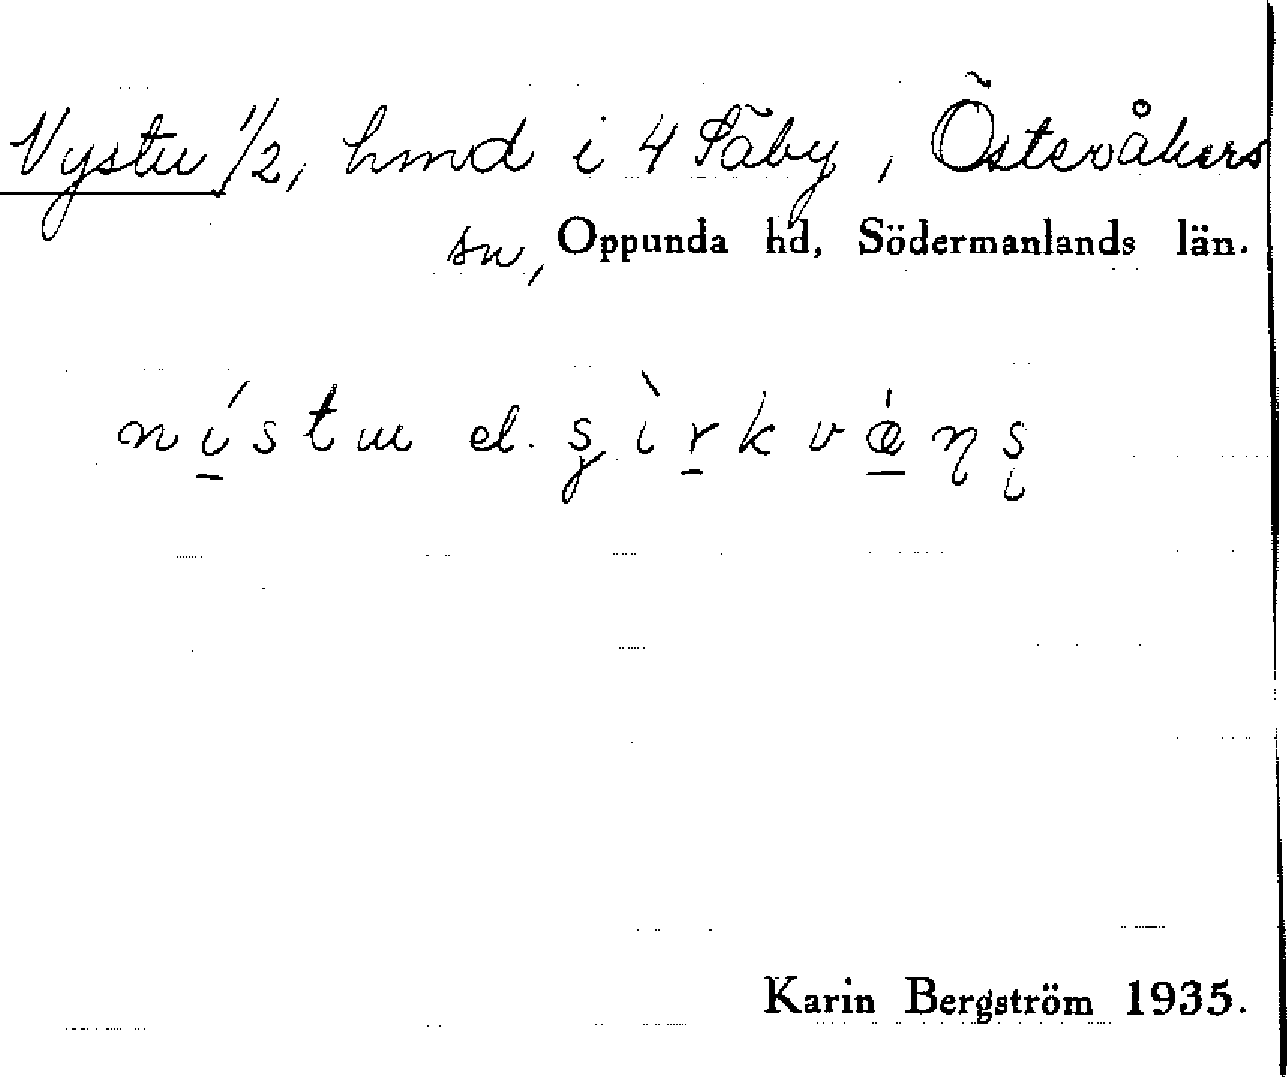 Vystu 1/2, hmd i 4 Täby, Östervåkers
sn, Oppunda hd, Södermanlands län.
el.
Karin Bergström 1935.